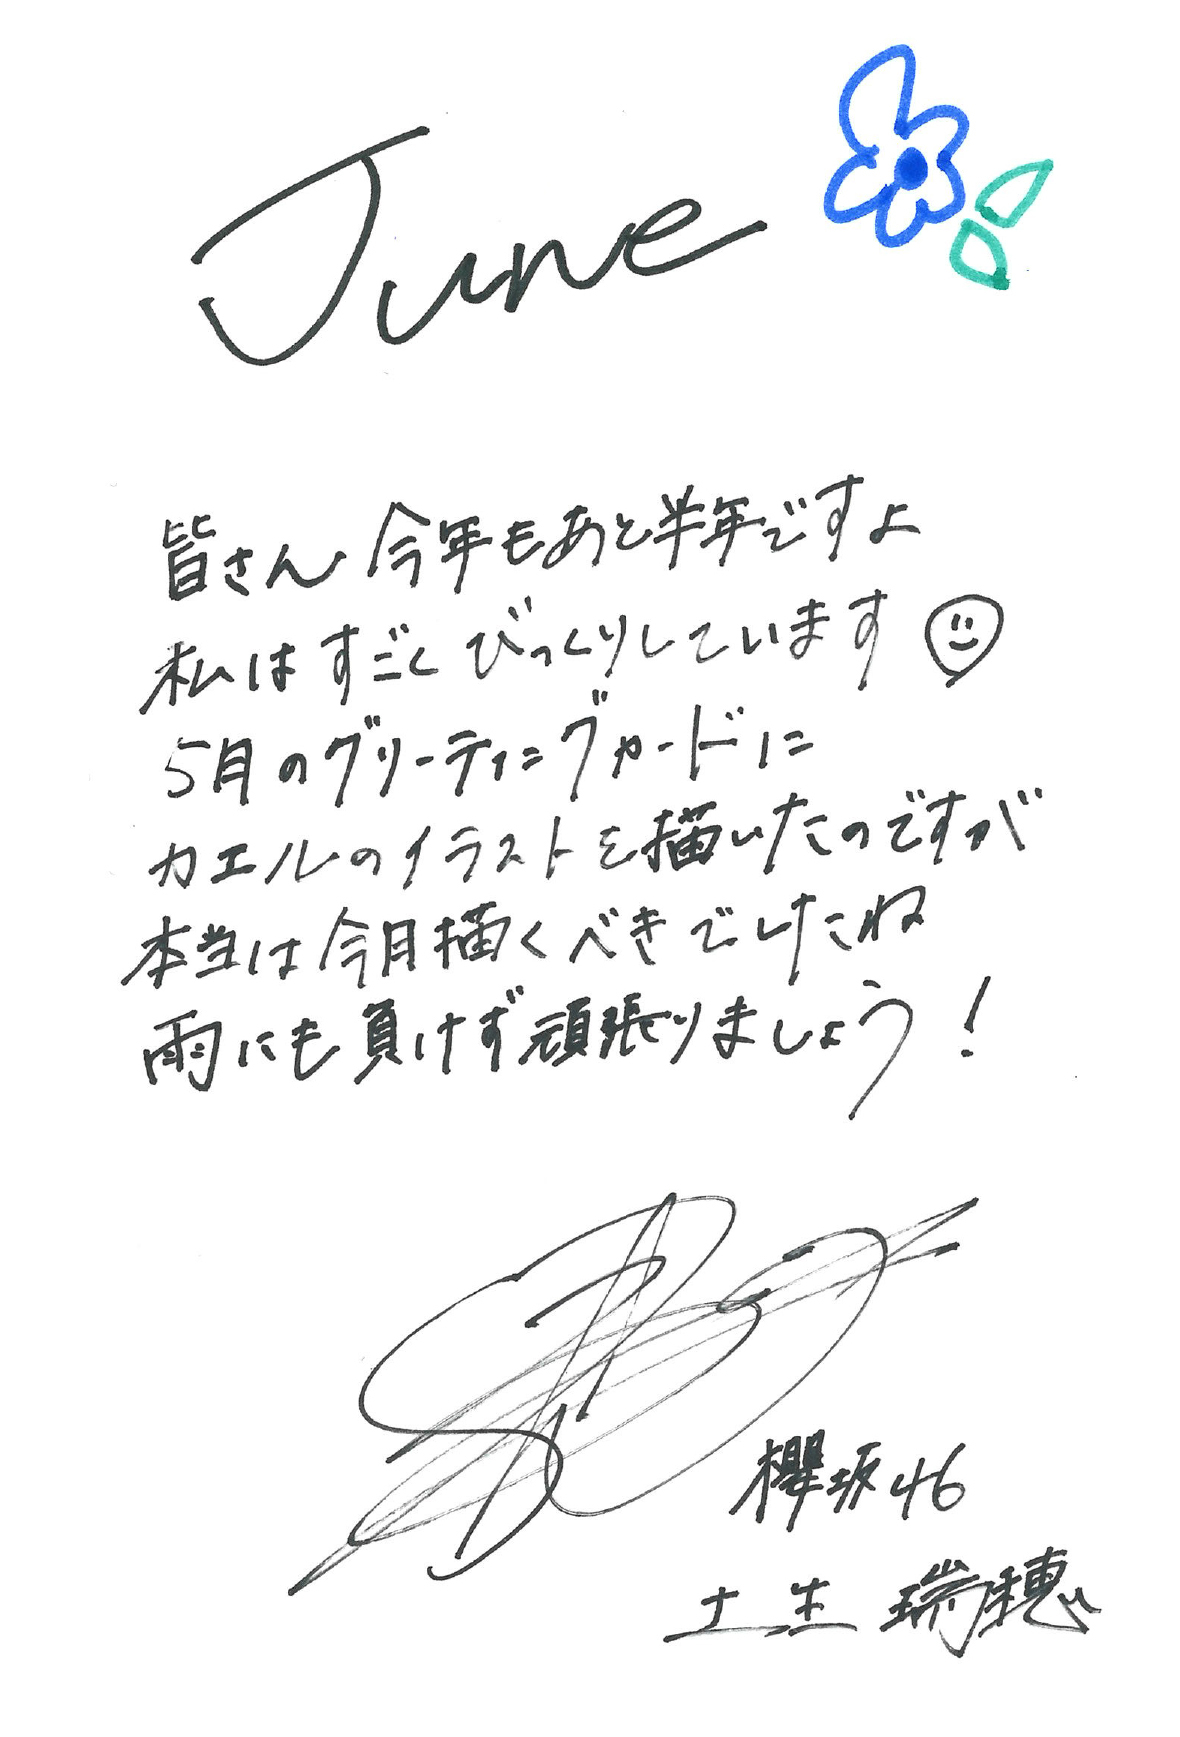 June
皆さん 今年もあと半年ですよ
私はすごくびっくりしています
5月のグリーティングカードに
カエルのイラストを描いたのですが
本当は今月描くべきでしたね
雨にも負けず頑張りましょう!
櫻坂46
土生 瑞穂